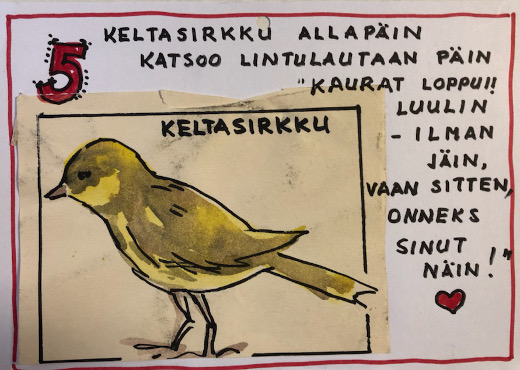 5
KELTASIRKKU ALLAPÄIN
KATSOO LINTULAUTAAN PÄIN
"KAURAT LOPPUI!
LUULIN
- ILMAN
JÄIN,
VAAN SITTEN,
ONNEKS
SINUT
NÄIN!"
KELTASIRKKU